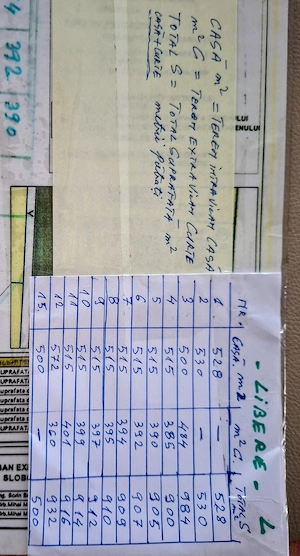 CASĂ m² = TEREN INTRAVILAN CASĂ
m² G = TEREN EXTRAVILAN CURTE
TOTAL S = TOTAL SUPRAFAȚĂ m²
CASĂ+CURTE metri pătrați
4 372 390
- LIBERE - L
NR. CASĂ. m2 m² G. TOTAL S m²
1 528 — 528
2 530 — 530
3 500 484 984
4 515 385 900
5 515 390 905
6 515 392 907
7 515 394 909
8 515 395 910
9 515 397 912
10 515 399 914
11 515 401 916
12 572 360 932
15. 500 — 500